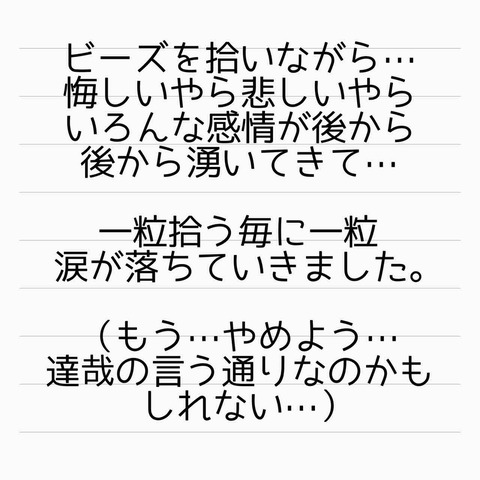 ビーズを拾いながら…
悔しいやら悲しいやら
いろんな感情が後から
後から湧いてきて…
一粒拾う毎に一粒
涙が落ちていきました。
（もう…やめよう…
達哉の言う通りなのかも
しれない…）